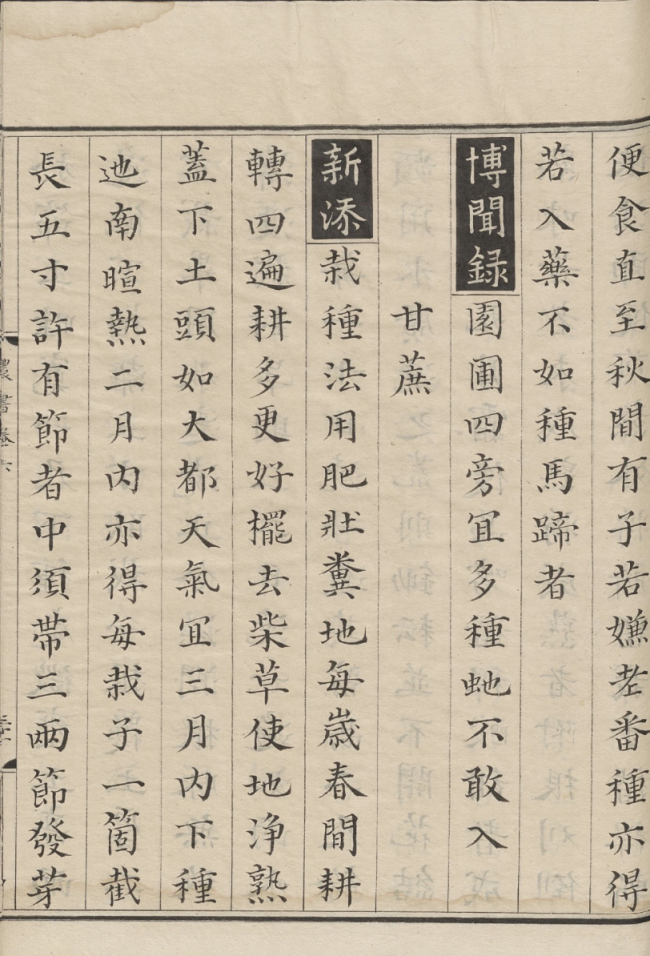 便食直至秋間有子若嫌老番種亦得
若入藥不如種馬蹄者
博聞録園圃四旁冝多種虵不敢入
甘蔗
新添栽種法用肥壯糞地每歳春間耕
轉四遍耕多更好擺去柴草使地浄熟
蓋下土頭如大都天氣冝三月內下種
迆南暄熱二月內亦得每栽子一箇截
長五寸許有節者中須帶三兩節發芽
農書卷六